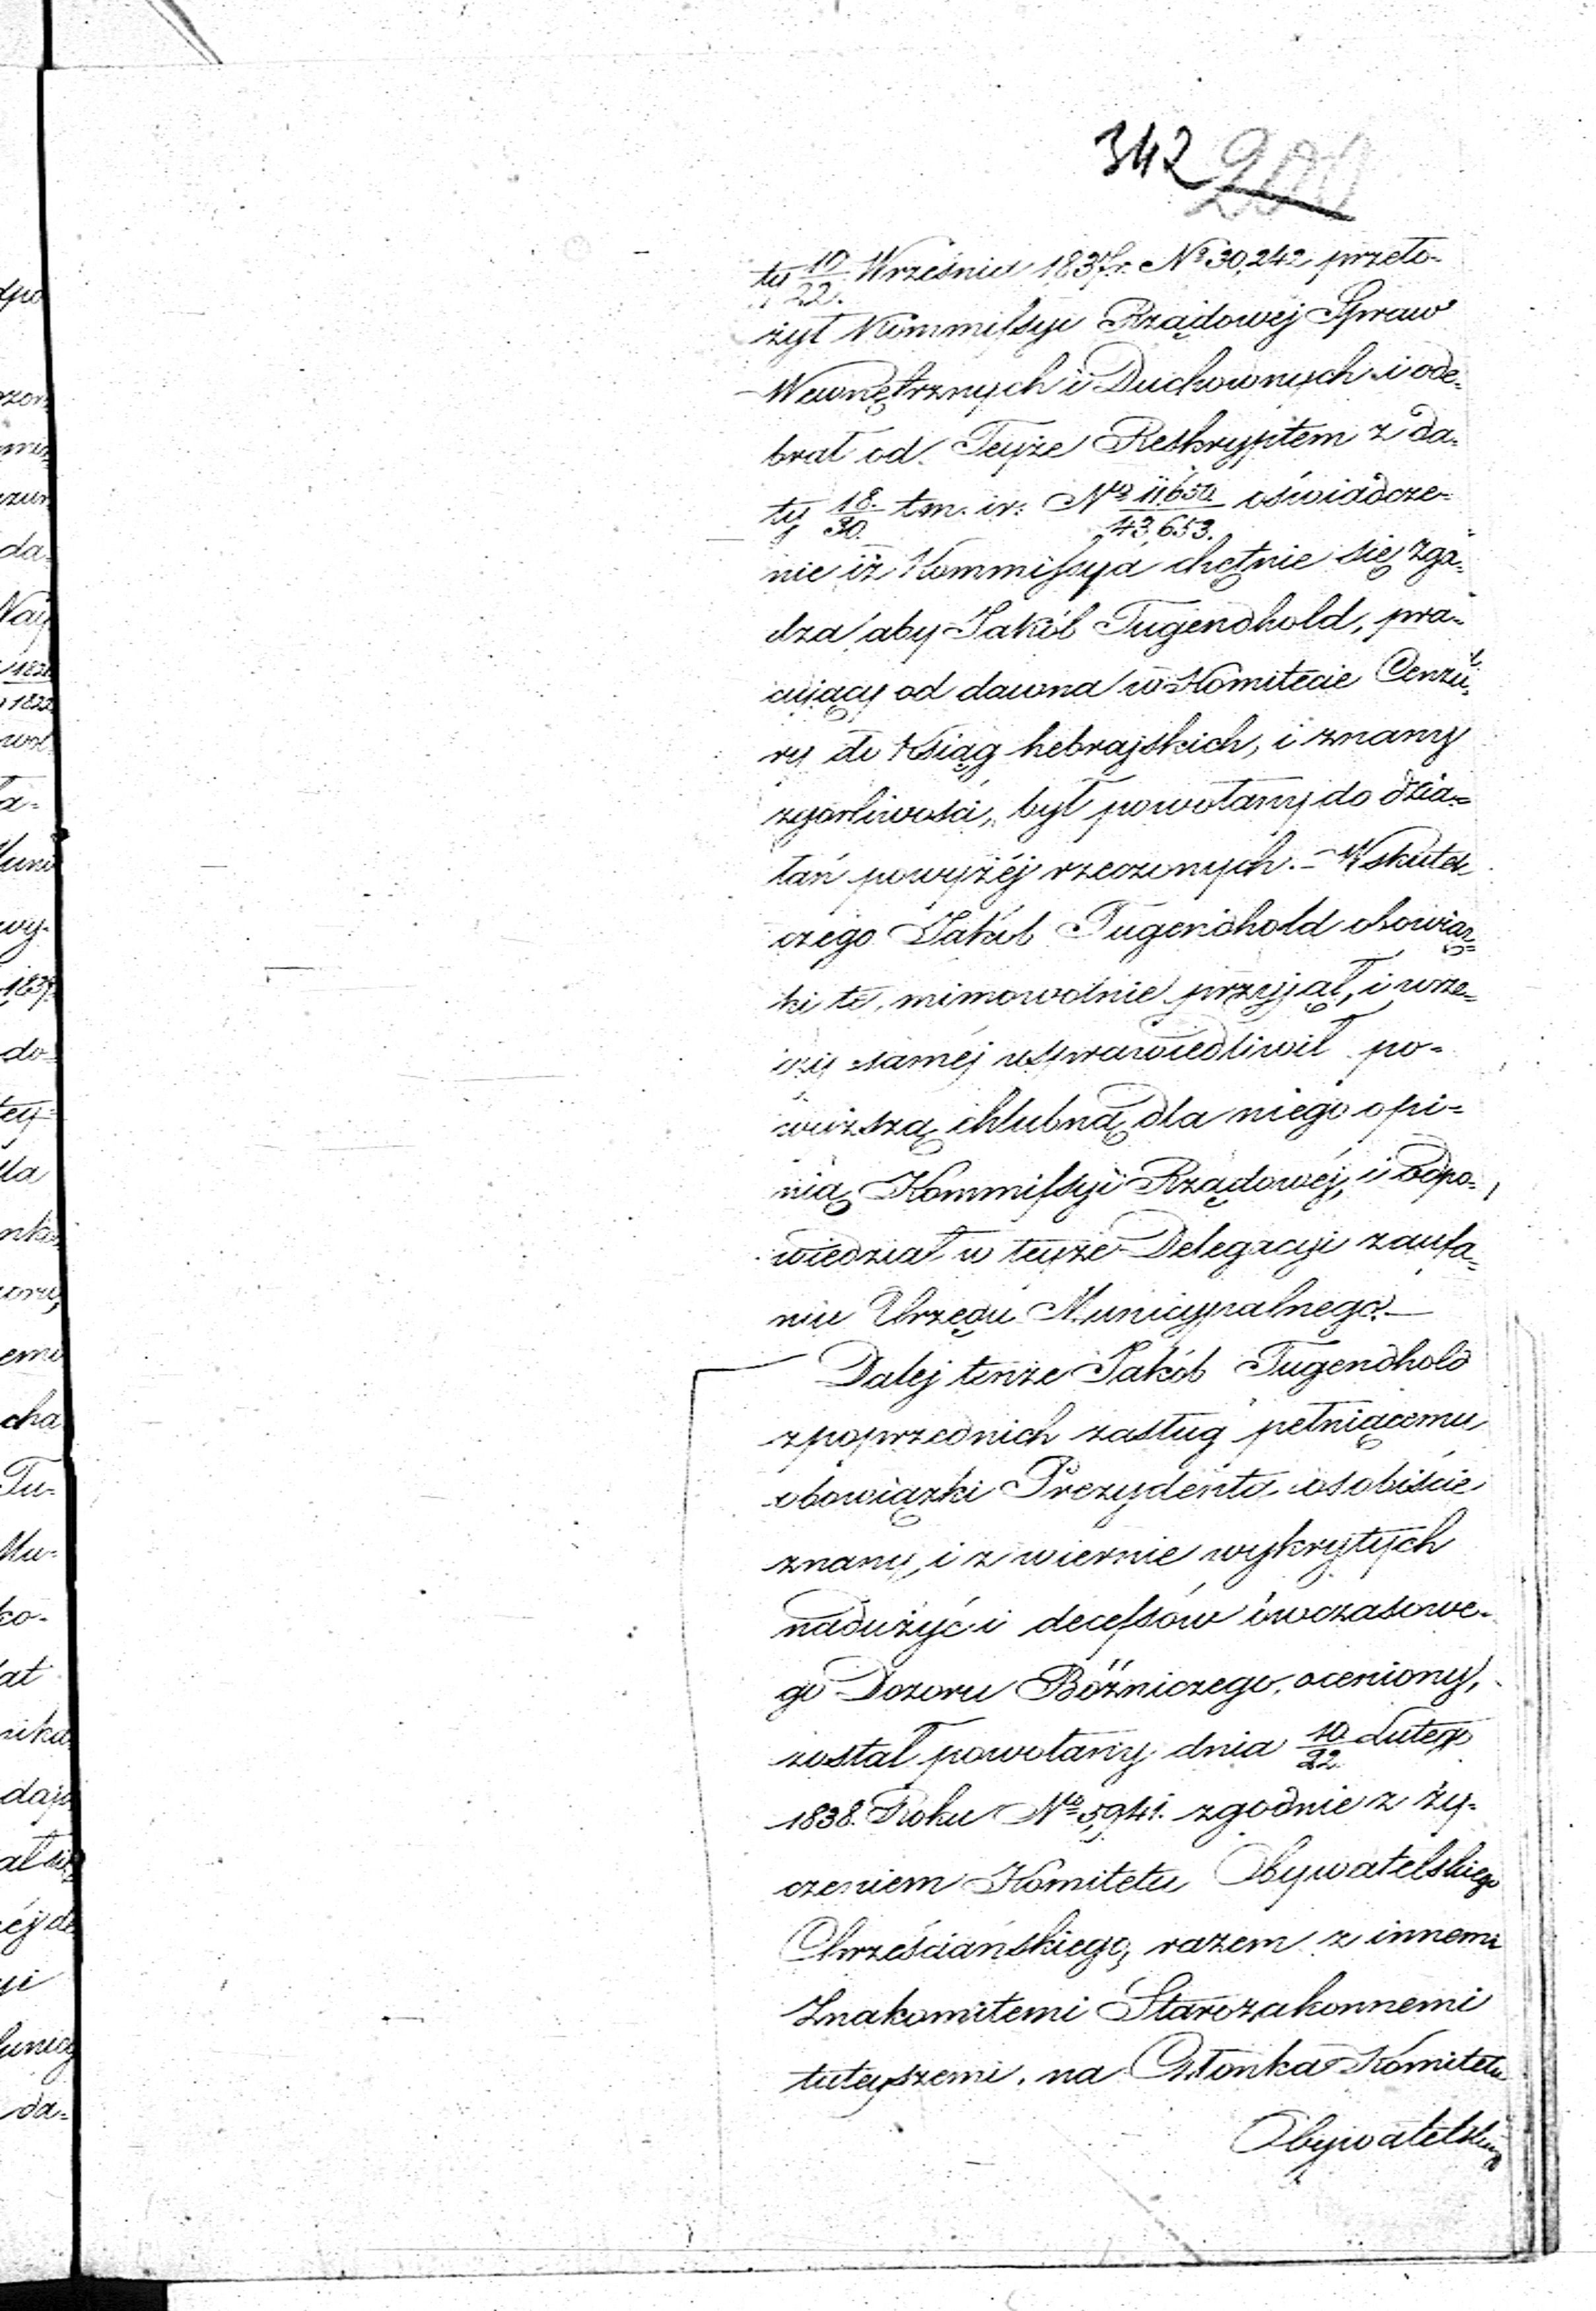 342 200
ty 10/22 Września 1837 r. No 30,242 przeło-
żył Kommissyi Rządowéj Spraw
Wewnętrznych i Duchownych i ode-
brał od Teyże Reskryptem z da-
ty 18/30 t.m. i r. No 11650/43,653. oświadcze-
nie iż Kommissya chętnie się zga-
dza aby Jakób Tugendhold, pra-
cujący od dawna w Komitecie Cenzu-
ry do Ksiąg hebrajskich, i znany
z gorliwości, był powołany do dzia-
łań powyżéj rzeczonych. - W skutek
czego Jakób Tugendhold obowiąz-
ki te, mimowolnie przyjął, i w rze-
czy saméj usprawiedliwił po-
wyższą chlubną dla niego opi-
nią Kommissyi Rządowéj, i odpo-
wiedział w teyże Delegacyi zaufa-
niu Urzędu Municypalnego. -
Daléj tenże Jakób Tugendhold
z poprzednich zasług pełniącemu
obowiązki Prezydenta osobiście
znany, i z wiernie wykrytych
nadużyć i decessów ówczasowe-
go Dozoru Bóżniczego, oceniony,
został powołany dnia 10/22 Lutego
1838. Roku No 5,941. zgodnie z ży-
czeniem Komitetu Obywatelskiego
Chrześciańskiego, razem z innemi
Znakomitemi Starozakonnemi
tuteyszemi, na Członka Komitetu
Obywatelskiego
dpo
da-
1837
do-
cha
Tu-
Mu-
ko-
da-